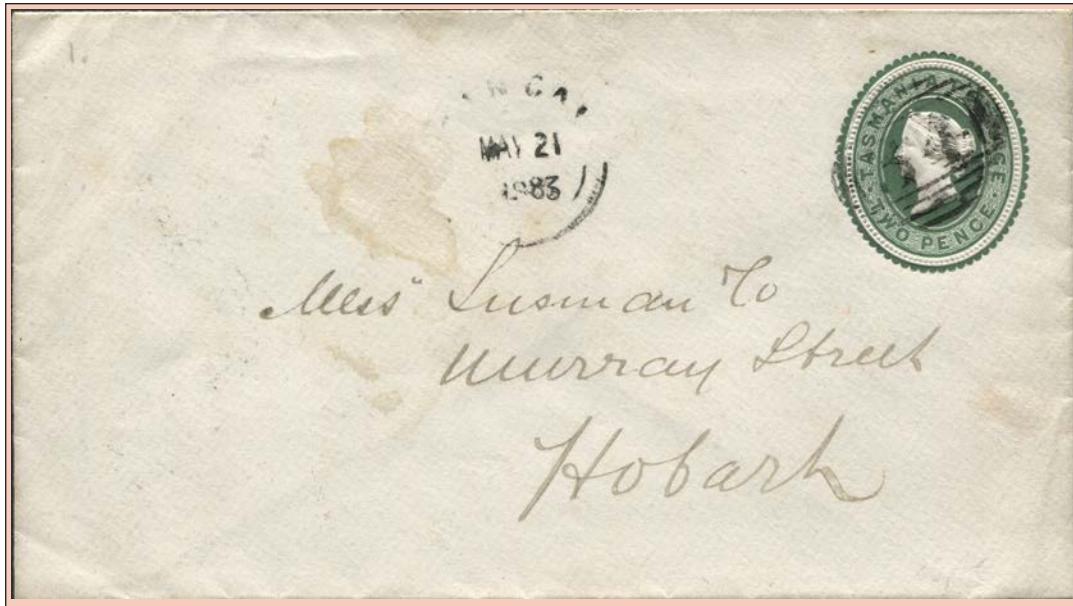 MAY 21
1883
TASMANIA POSTAGE
TWO PENCE
Mess
Murray Street
Hobart